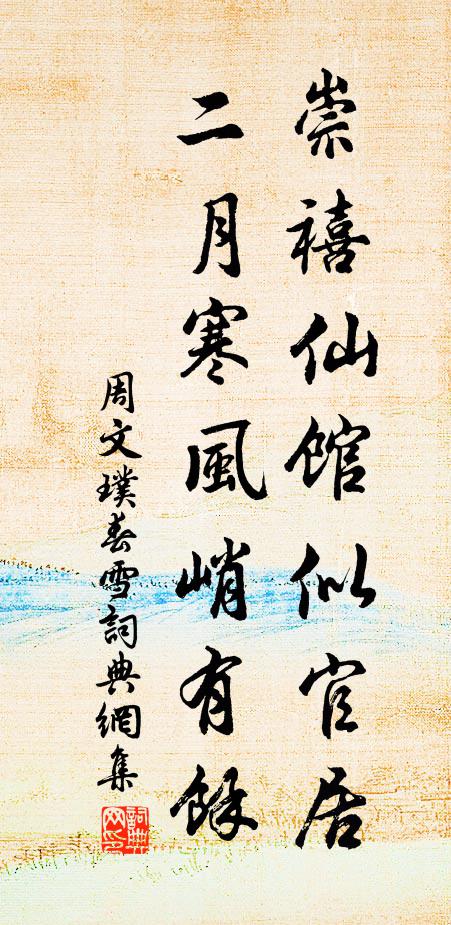 崇禧仙館似官居
二月寒風峭有餘
周文璞春雪詞典網集
詞典網印